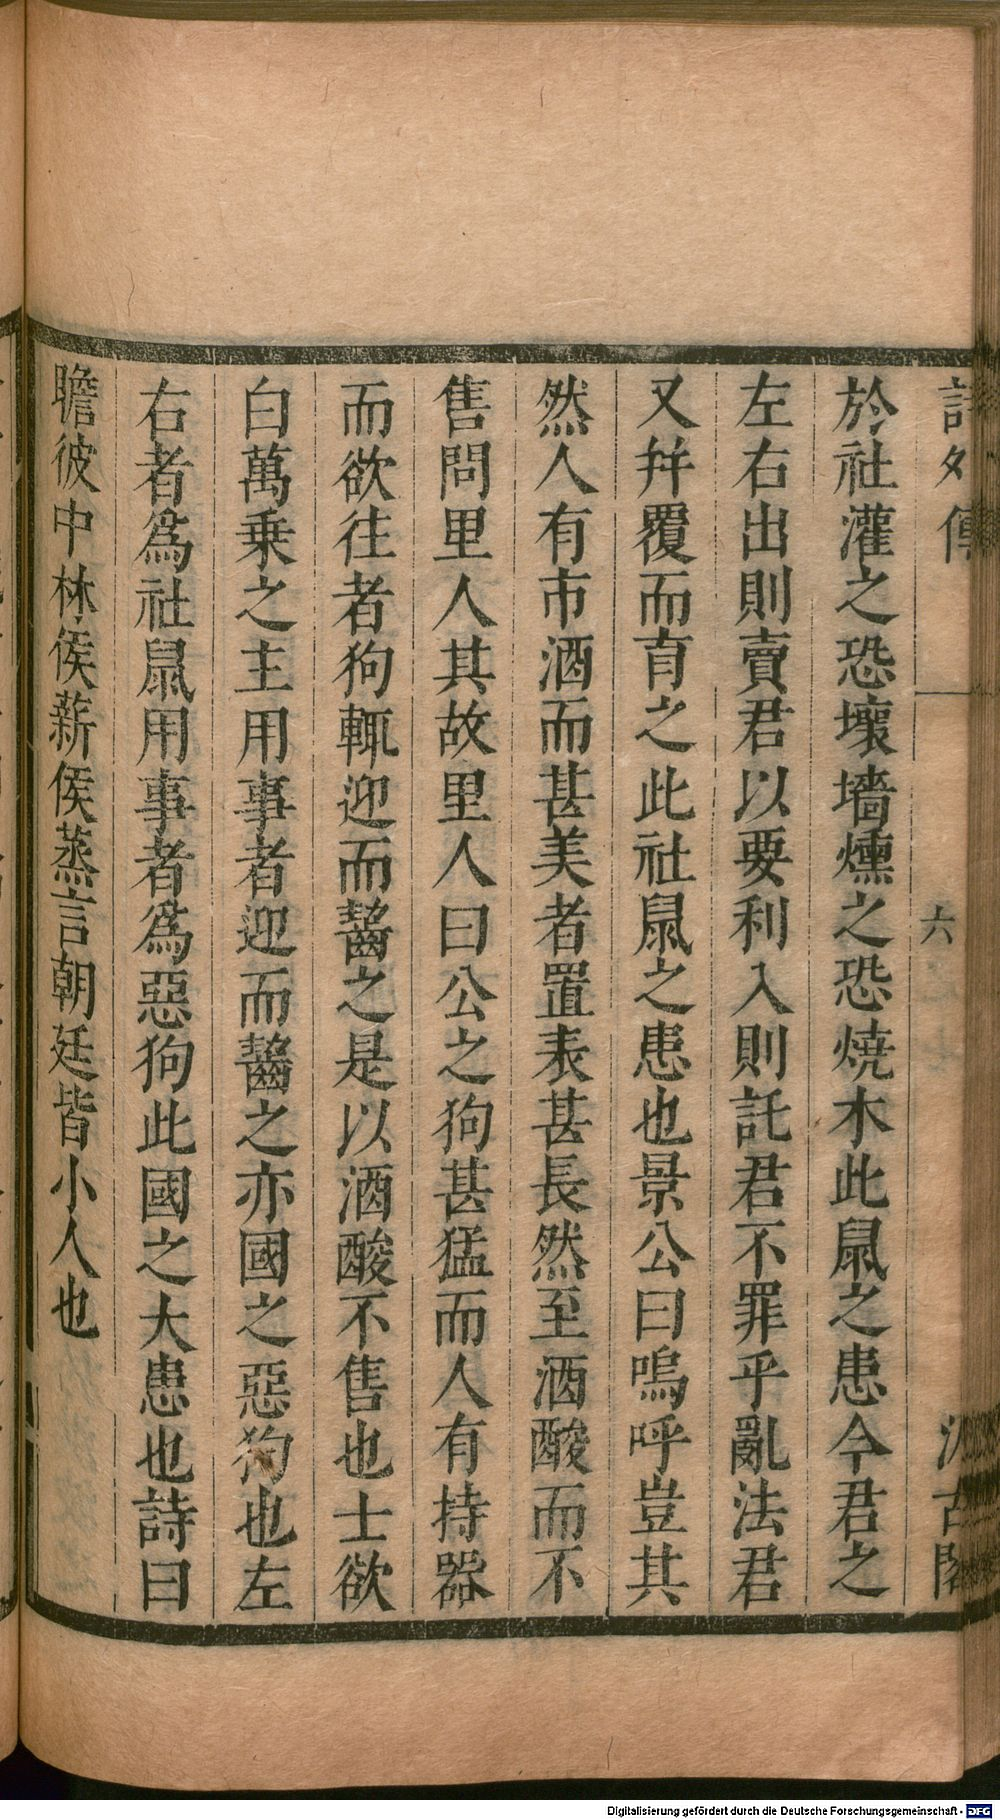 詩外傳
六
汲古閣
於社灌之恐壞墻燻之恐燒木此鼠之患今君之
左右出則賣君以要利入則託君不罪乎亂法君
又幷覆而育之此社鼠之患也景公曰嗚呼豈其
然人有市酒而甚美者置表甚長然至酒酸而不
售問里人其故里人曰公之狗甚猛而人有持器
而欲往者狗輒迎而齧之是以酒酸不售也士欲
白萬乘之主用事者迎而齧之亦國之惡狗也左
右者爲社鼠用事者爲惡狗此國之大患也詩曰
瞻彼中林侯薪侯蒸言朝廷皆小人也
Digitalisierung gefördert durch die Deutsche Forschungsgemeinschaft - DFG